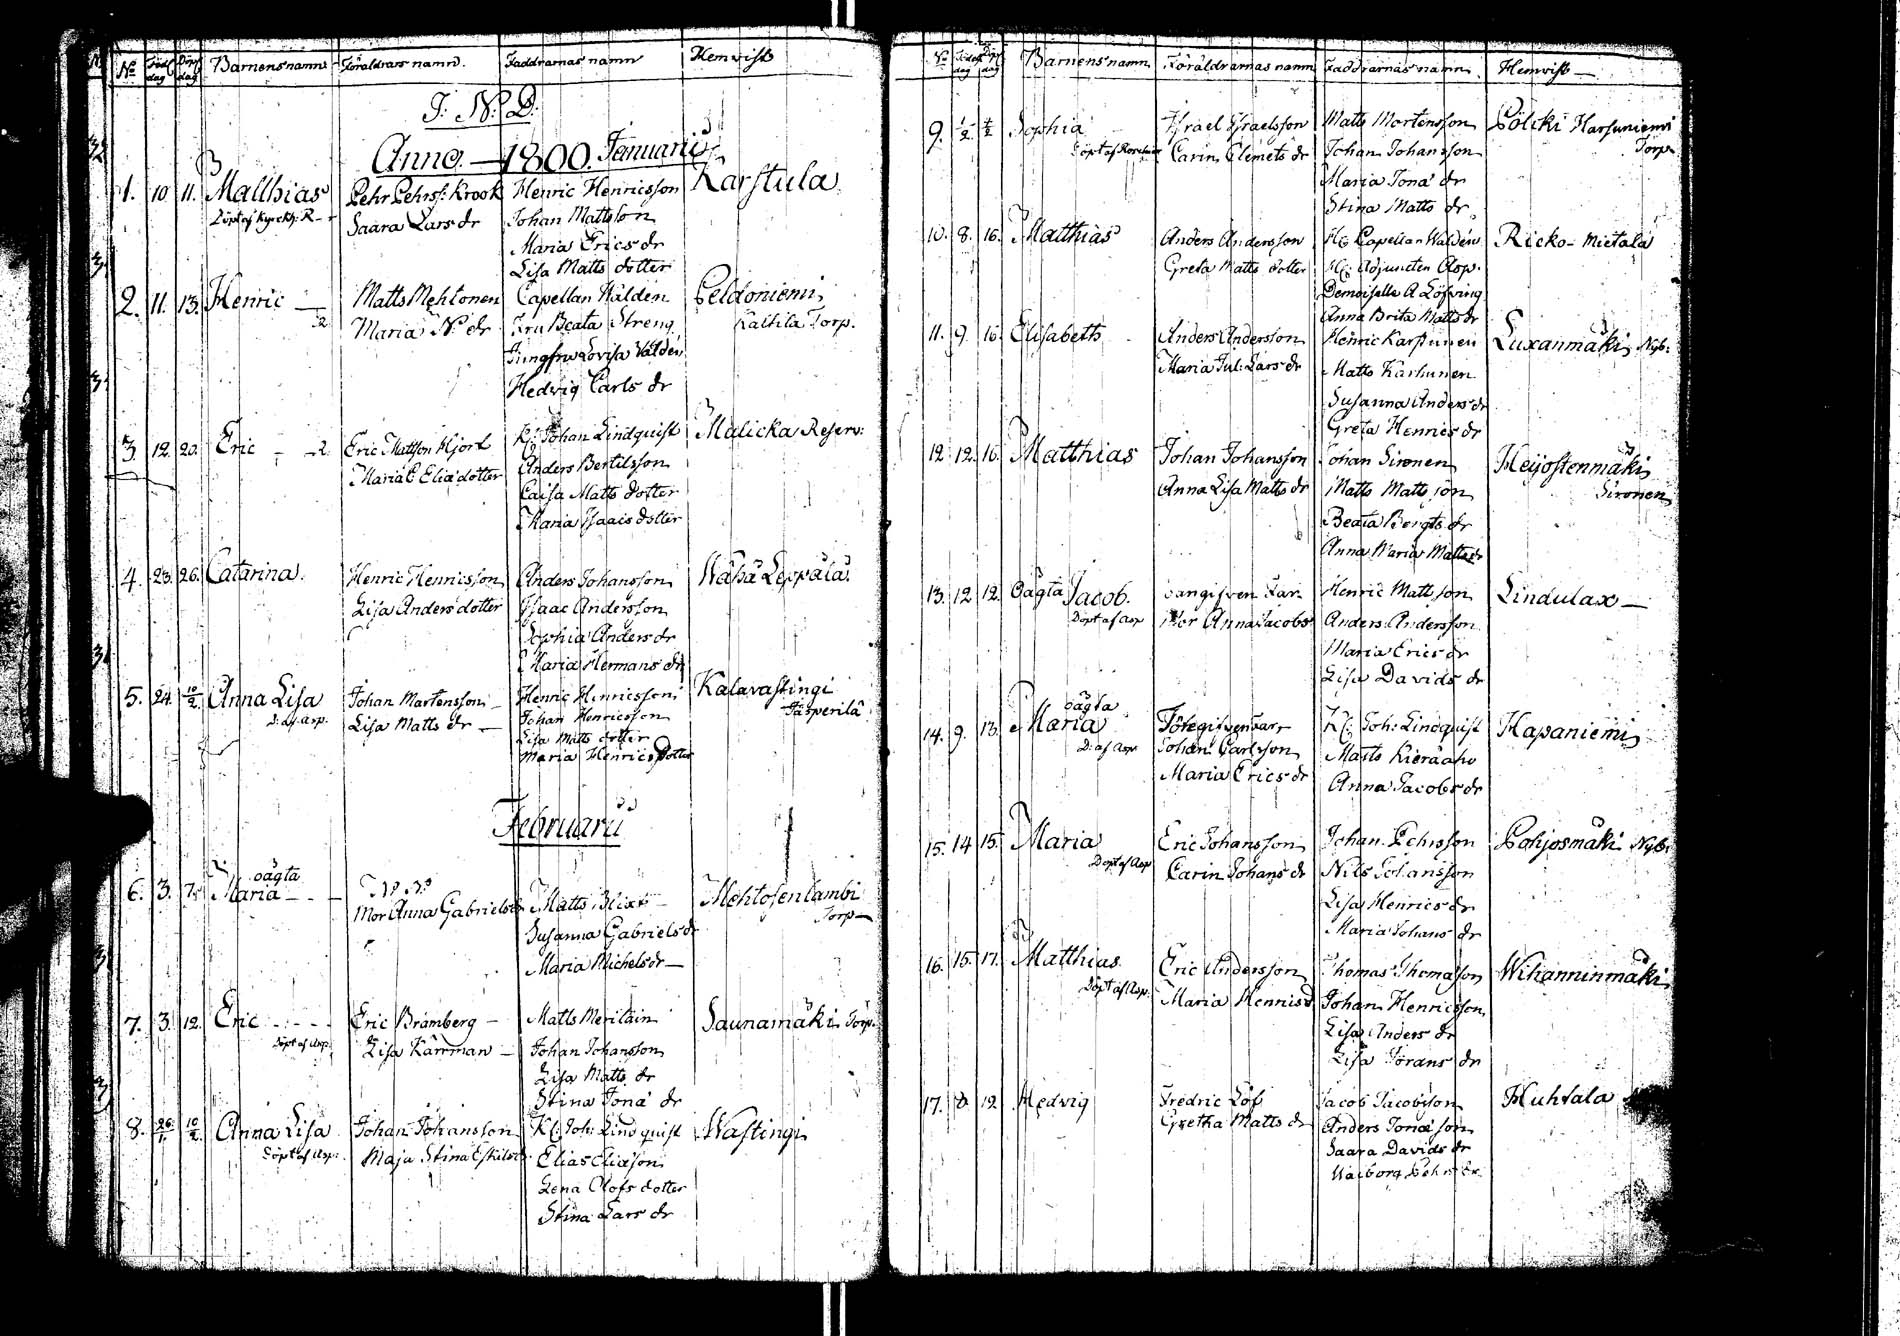 No Föd. dag Döp. dag Barnens namn Föräldrars namn. Faddrarnas namn Hemvist
J. N. D.
Anno. — 1800. Januarii
1. 10. 11. Matthias Pehr Pehrss: Krook Henric Henricsson Karstula
Döpt af Kyrckh: Saara Lars dr Johan Mattsson
Maria Erics dr
Lisa Matts dotter
2. 11. 13. Henric — Matts Mehtonen Capellan Walden Peldoniemi
Maria N. dr Fru Beata Streng Kaltila Torp.
Jungfru Lovisa Walden
Hedvig Carls dr
3. 12. 20. Eric — Eric Mattson Hjort Johan Lindquist Malicka Reserv:
Maria E Elia dotter Anders Bertilsson
Caisa Matts dotter
Maria Isaacs dotter
4. 23. 26. Catarina. Henric Henricsson Anders Johansson Wähä Leppälä.
Lisa Anders dotter Isaac Andersson
Sophia Anders dr
Maria Hermans dr
5. 24. 10/2 Anna Lisa Johan Martensson Henric Henricsson Kalavastingi
D: af Asp. Lisa Matts dr — Johan Henricsson Jäsperilä
Lisa Matts dotter
Maria Henrics Dotter
Februarii
oägta
6. 3. 7. Maria — N. N. Matts Blixt — Mehtosenlambi
Mor Anna Gabriels dr Susanna Gabriels dr Torp —
Maria Michels dr —
7. 3. 12. Eric Eric Bramberg — Matts Meritain Saunamäki Torp.
Döpt af Asp. Lisa Kärrman — Johan Johansson
Lisa Matts dr
Stina Jona dr
8. 26/1. 10/2. Anna Lisa Johan Johansson Kl: Joh: Lindquist Wastingi
Döpt af Asp: Maja Stina Eskils dr Elias Eliasson
Lena Olofs dotter
Stina Lars dr
No Födelse dag Döp dag Barnens namn Föräldrarnas namn Faddrarnas namn Hemvist —
9. 1/2 Sophia Israel Israelsson Matts Mortensson Pölcki Harsuniemi
Döpt af Carin Clemets dr Johan Johansson Torp
Maria Jona dr
Stina Matts dr
10. 8. 16. Matthias Anders Andersson Hr Capellan Walden Rieko-Mietala
Greta Matts dotter Hr Adjuncten Asp.
Demoiselle A Löfving
Anna Brita Matts dr
11. 9. 16. Elisabeth Anders Andersson Henric Karhunen Luxanmäki Nyb:
Maria Jul: Lars dr Matts Karhunen
Susanna Anders dr
Greta Henrics dr
12. 12. 16. Matthias Johan Johansson Johan Sironen Heijostenmäki
Anna Lisa Matts dr Matts Mattsson Sironen
Beata Bengts dr
Anna Maria Matts dr
13. 12. 12. Oägta Jacob. oangifven Far Henric Mattsson Lindulax —
Döpt af Asp Mor Anna Jacobs Anders Andersson
Maria Erics dr
Lisa Davids dr
oägta
14. 9. 13. Maria Föregifven Far Kl: Joh: Lindquist Hapaniemi
D: af Asp Johan Carlsson Matts Kieräaho
Maria Erics dr Anna Jacobs dr
15. 14. 15. Maria Eric Johansson Johan Pehrsson Pohjosmäki Nyb:
Döpt af Asp Carin Johans dr Nils Johansson
Lisa Henrics dr
Maria Johans dr
16. 15. 17. Matthias Eric Andersson Thomas Thomasson Wihanninmäki
Döpt af Asp: Maria Henrics d Johan Henricsson
Lisa Anders dr
Lisa Jörans dr
17. 8. 12 Hedvig Fredric Löf Jacob Jacobsson Huhtala
Gretha Matts dr Anders Jonasson
Saara Davids dr
Walborg Pehrs dr